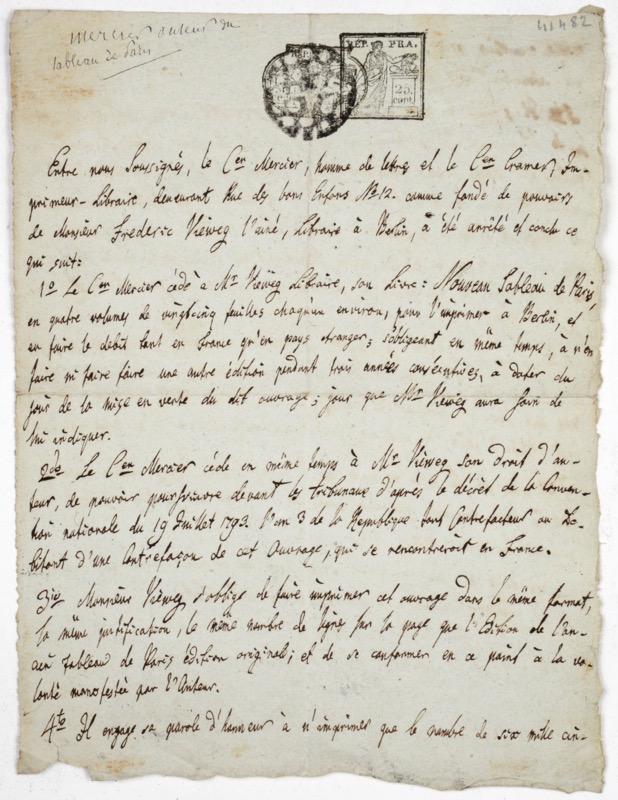 41482
mercier auteur du
tableau de Paris
RÉP. FRA.
25
cent.
Entre nous Soussignés, le Cen Mercier, homme de lettres et le Cen Cramer, Im-
primeur-Libraire, demeurant Rue des bons Enfans No 12. comme fondé de pouvoirs
de Monsieur Frederic Vieweg l'ainé, Libraire à Berlin, à été arrêté et conclu ce
qui suit:
1o Le Cen Mercier cédé à Mr Vieweg Libraire, son Livre: Nouveau Tableau de Paris,
en quatre volumes de vingtcinq feuilles chaqu'un environ, pour l'imprimer à Berlin, et
en faire le debit tant en France qu'en pays etranger; s'obligeant en même temps, à n'en
faire ni faire faire une autre édition pendant trois années consécutives, à dater du
jour de la mise en vente du dit ouvrage; jour que Mr Vieweg aura soin de
lui indiquer.
2do Le Cen Mercier céde en même temps à Mr Vieweg son droit d'au-
teur, de pouvoir poursuivre devant les tribunaux d'après le décrèt de la Conven-
tion nationale du 19 Juillet 1793. l'an 3 de la Republique tout Contrefacteur ou De-
bitant d'une Contrefaçon de cet Ouvrage, qui se rencontreroit en France.
3io Monsieur Vieweg s'oblige de faire imprimer cet ouvrage dans le même format,
la même justification, le même nombre de lignes sur la page que l'Edition de l'an-
cien tableau de Paris édition originale; et de se conformer en ce point à la vo-
lonté manifestée par l'Auteur.
4to Il engage sa parole d'honneur à n'imprimer que le nombre de six mille cin-